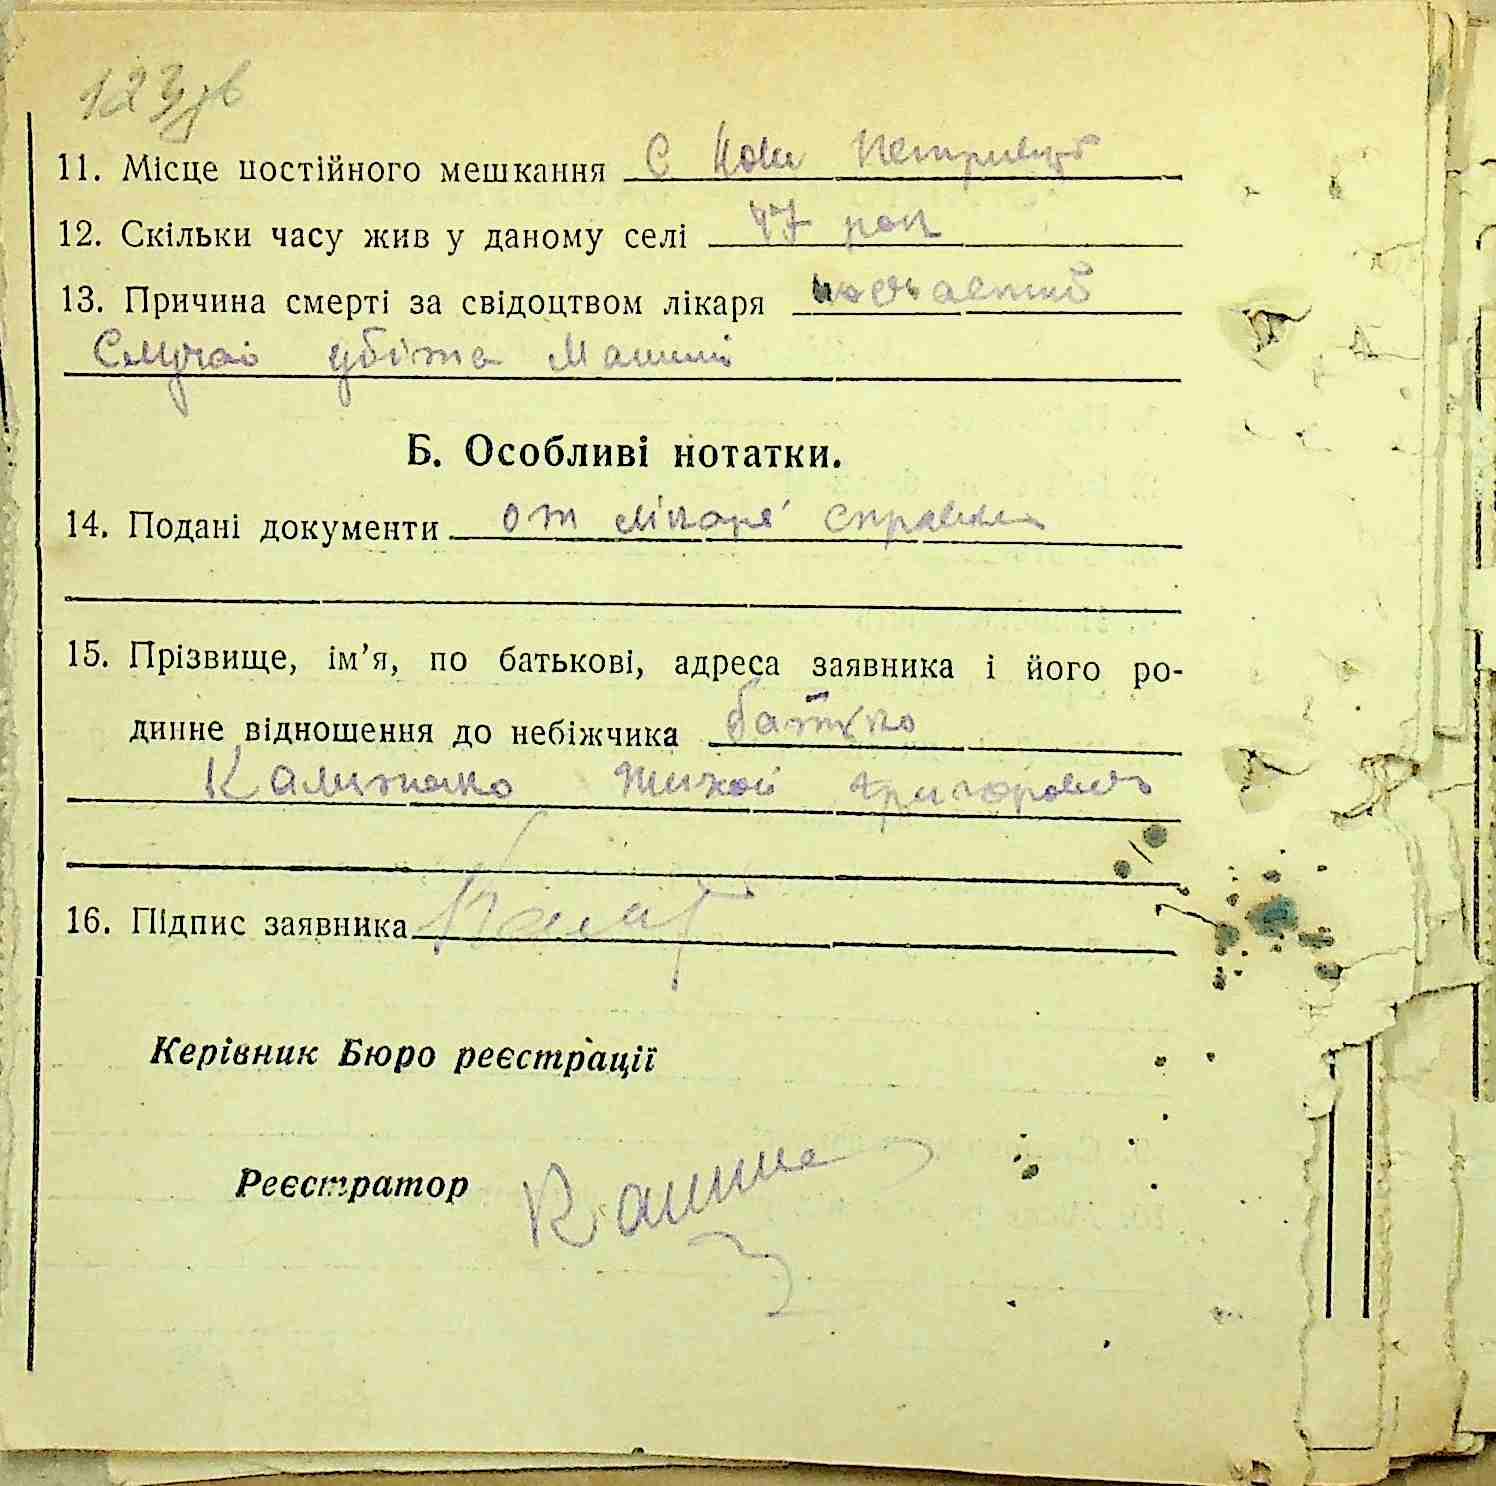 123 зв
11. Місце постійного мешкання с Нові Петрівці
12. Скільки часу жив у даному селі 47 рок
13. Причина смерті за свідоцтвом лікаря нещасний
Случай убіта Машині
Б. Особливі нотатки.
14. Подані документи от лікаря справка
15. Прізвище, ім’я, по батькові, адреса заявника і його ро-
динне відношення до небіжчика батько
Тихой Григоровичь
16. Підпис заявника
Керівник Бюро реєстрації
Реєстратор